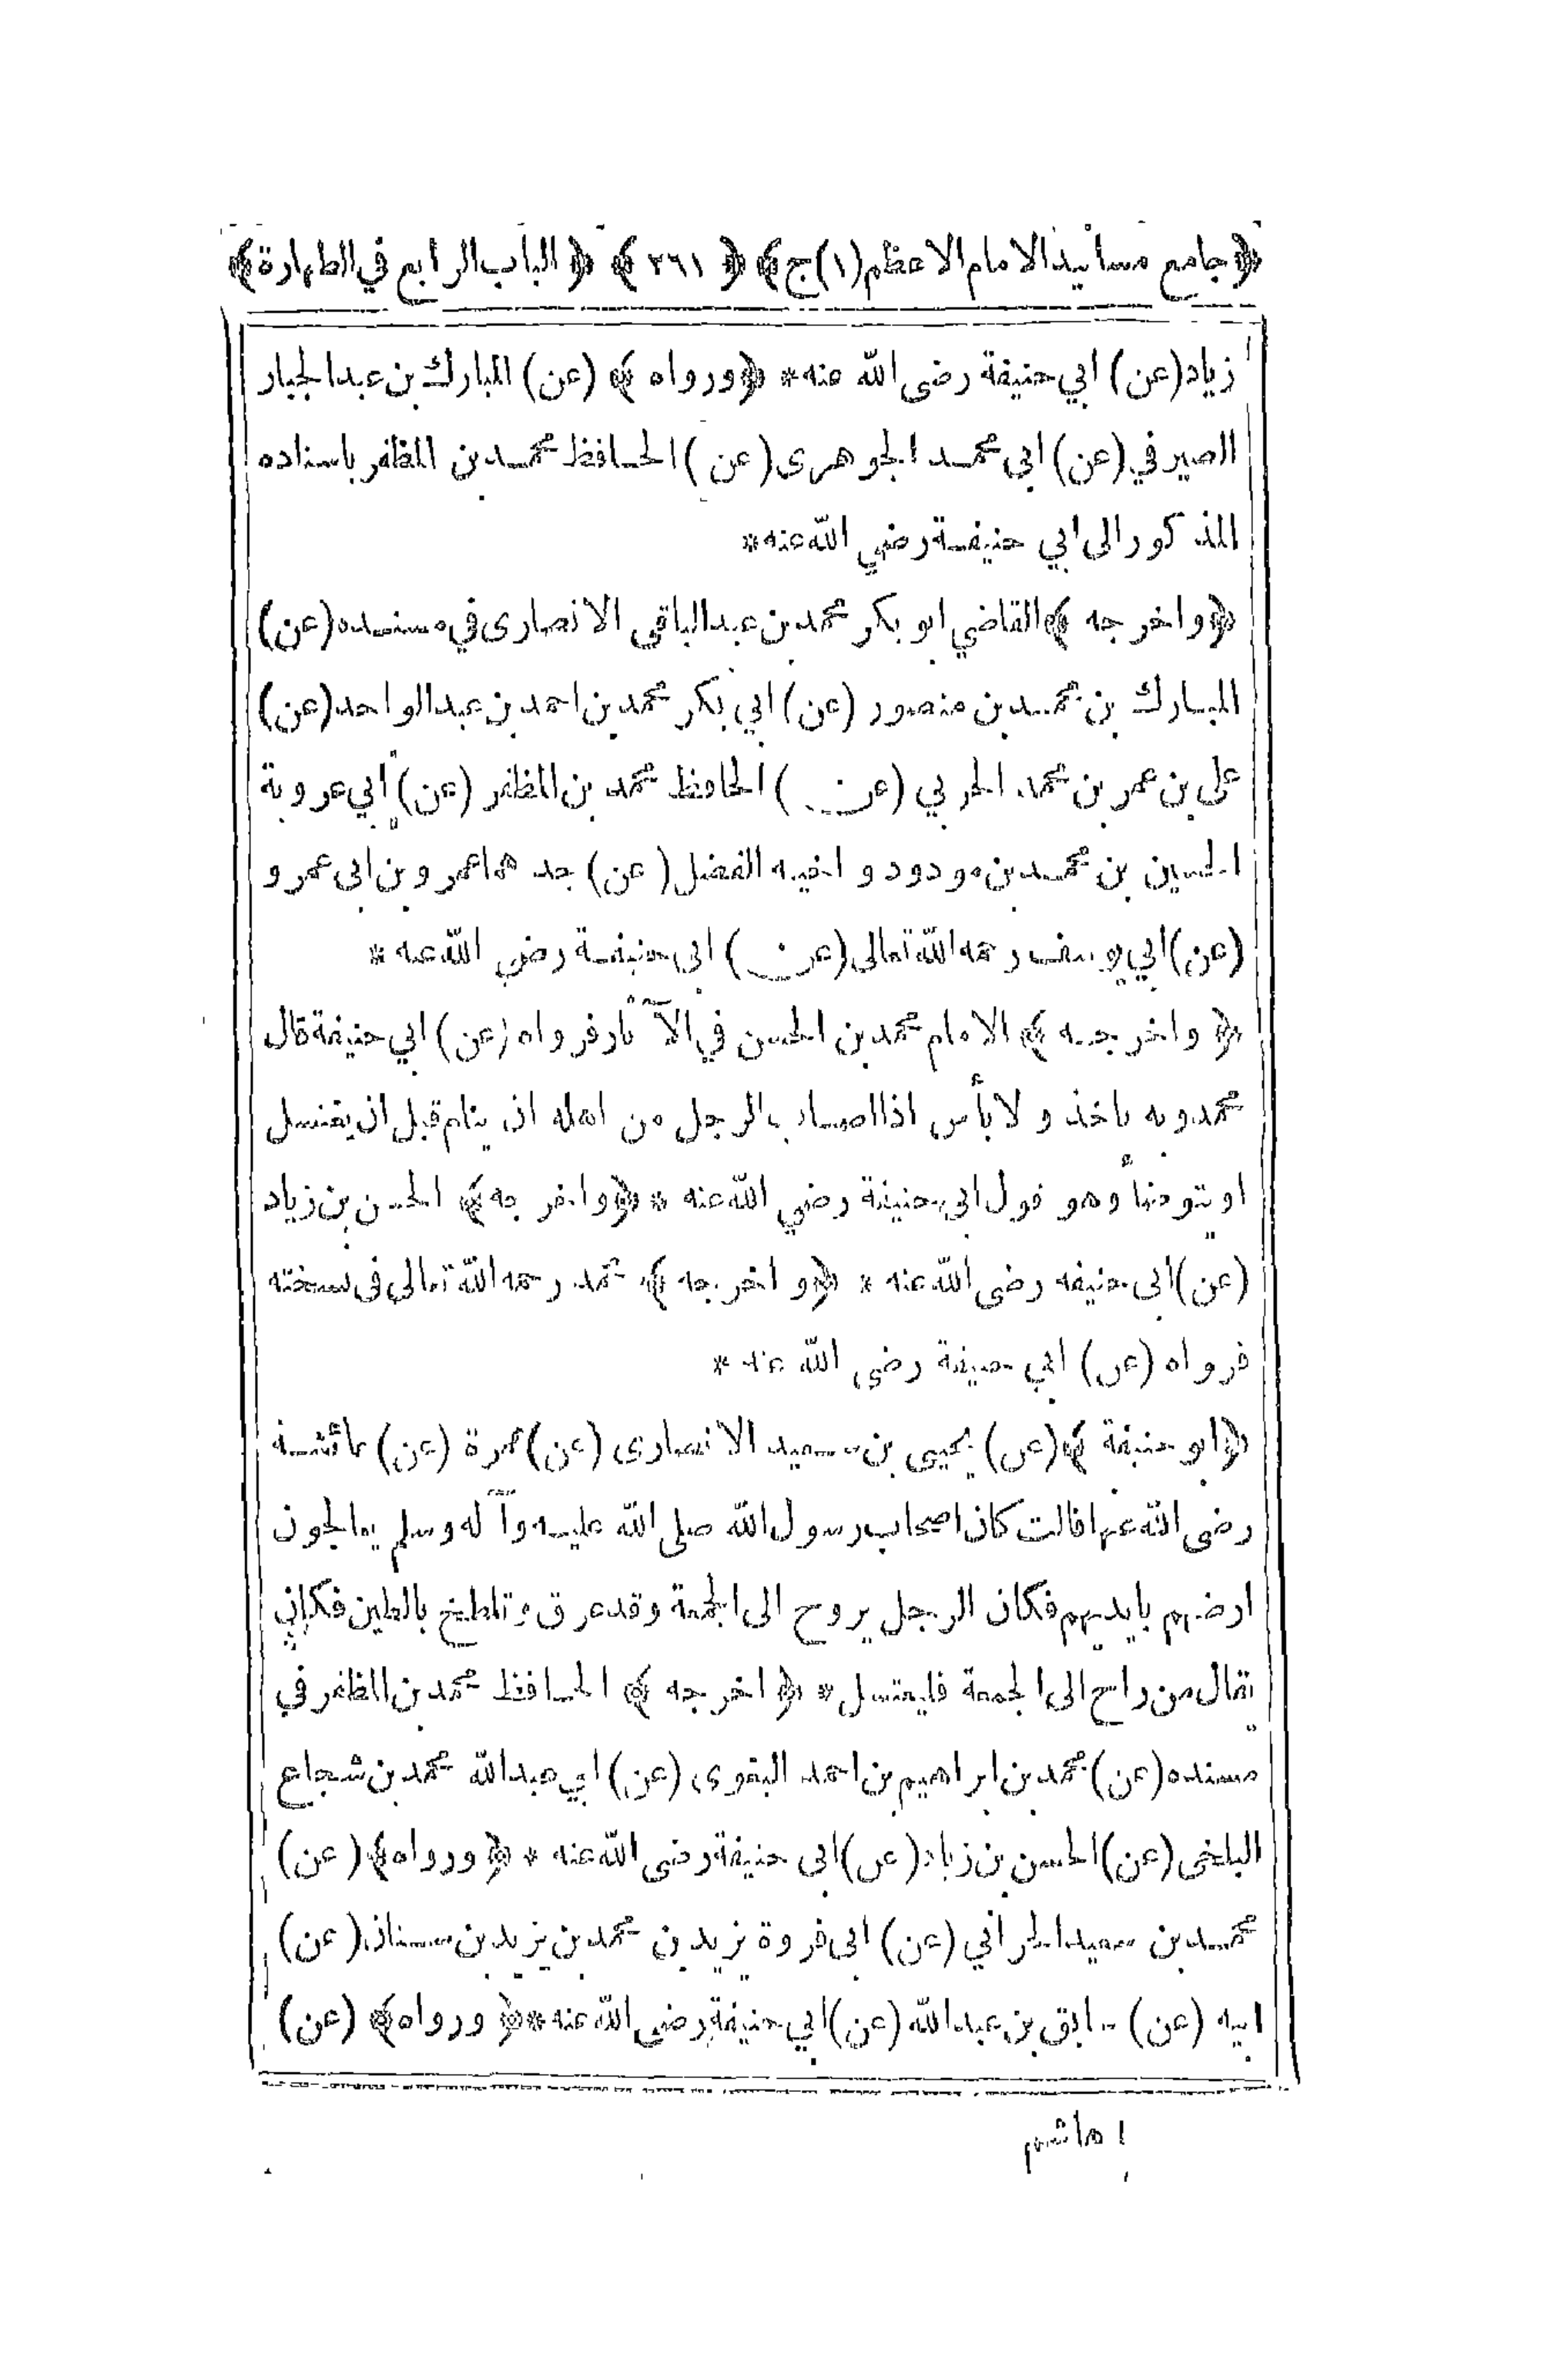 ﴿جامع مسانيد الامام الاعظم (١) ج﴾ ﴿ ٢٦١ ﴾ ﴿ الباب الرابع في الطهارة﴾
زياد (عن) ابي حنيفة رضى الله عنه * ﴿ورواه﴾ (عن) المبارك بن عبد الجبار
الصيرفي (عن) ابى محمد الجوهرى (عن) الحافظ محمد بن المظفر باسناده
المذكور الى ابي حنيفة رضي الله عنه *
﴿واخرجه﴾ القاضي ابو بكر محمد بن عبد الباقى الانصارى في مسنده (عن)
المبارك بن محمد بن منصور (عن) ابي بكر محمد بن احمد بن عبد الواحد (عن)
على بن عمر بن محمد الحربي (عن) الحافظ محمد بن المظفر (عن) ابي عروبة
الحسين بن محمد بن مودود و اخيه الفضل (عن) جدهما عمرو بن ابى عمرو
(عن) ابي يوسف رحمه الله تعالى (عن) ابى حنيفة رضي الله عنه *
﴿ واخرجه ﴾ الامام محمد بن الحسن في الآثار فرواه (عن) ابي حنيفة قال
محمد وبه ناخذ ولا بأس اذا اصاب الرجل من اهله ان ينام قبل ان يغتسل
او يتوضأ وهو قول ابى حنيفة رضي الله عنه * ﴿واخرجه﴾ الحسن بن زياد
(عن) ابى حنيفه رضى الله عنه * ﴿واخرجه﴾ محمد رحمه الله تعالى فى نسخته
فرواه (عن) ابي حنيفة رضى الله عنه *
﴿ابو حنيفة﴾ (عن) يحيى بن سعيد الانصارى (عن) عمرة (عن) عائشة
رضى الله عنها قالت كان اصحاب رسول الله صلى الله عليه وآله وسلم يعالجون
ارضهم بايديهم فكان الرجل يروح الى الجمعة وقد عرق وتلطخ بالطين فكان
يقال من راح الى الجمعة فليغتسل * ﴿ اخرجه ﴾ الحافظ محمد بن المظفر في
مسنده (عن) محمد بن ابراهيم بن احمد البغوى (عن) ابي عبد الله محمد بن شجاع
البلخى (عن) الحسن بن زياد (عن) ابى حنيفة رضى الله عنه * ﴿ورواه﴾ (عن)
محمد بن سعيد الحراني (عن) ابى فروة يزيد بن محمد بن يزيد بن سنان (عن)
ابيه (عن) سابق بن عبد الله (عن) ابي حنيفة رضى الله عنه * ﴿ورواه﴾ (عن)
ا هاشم